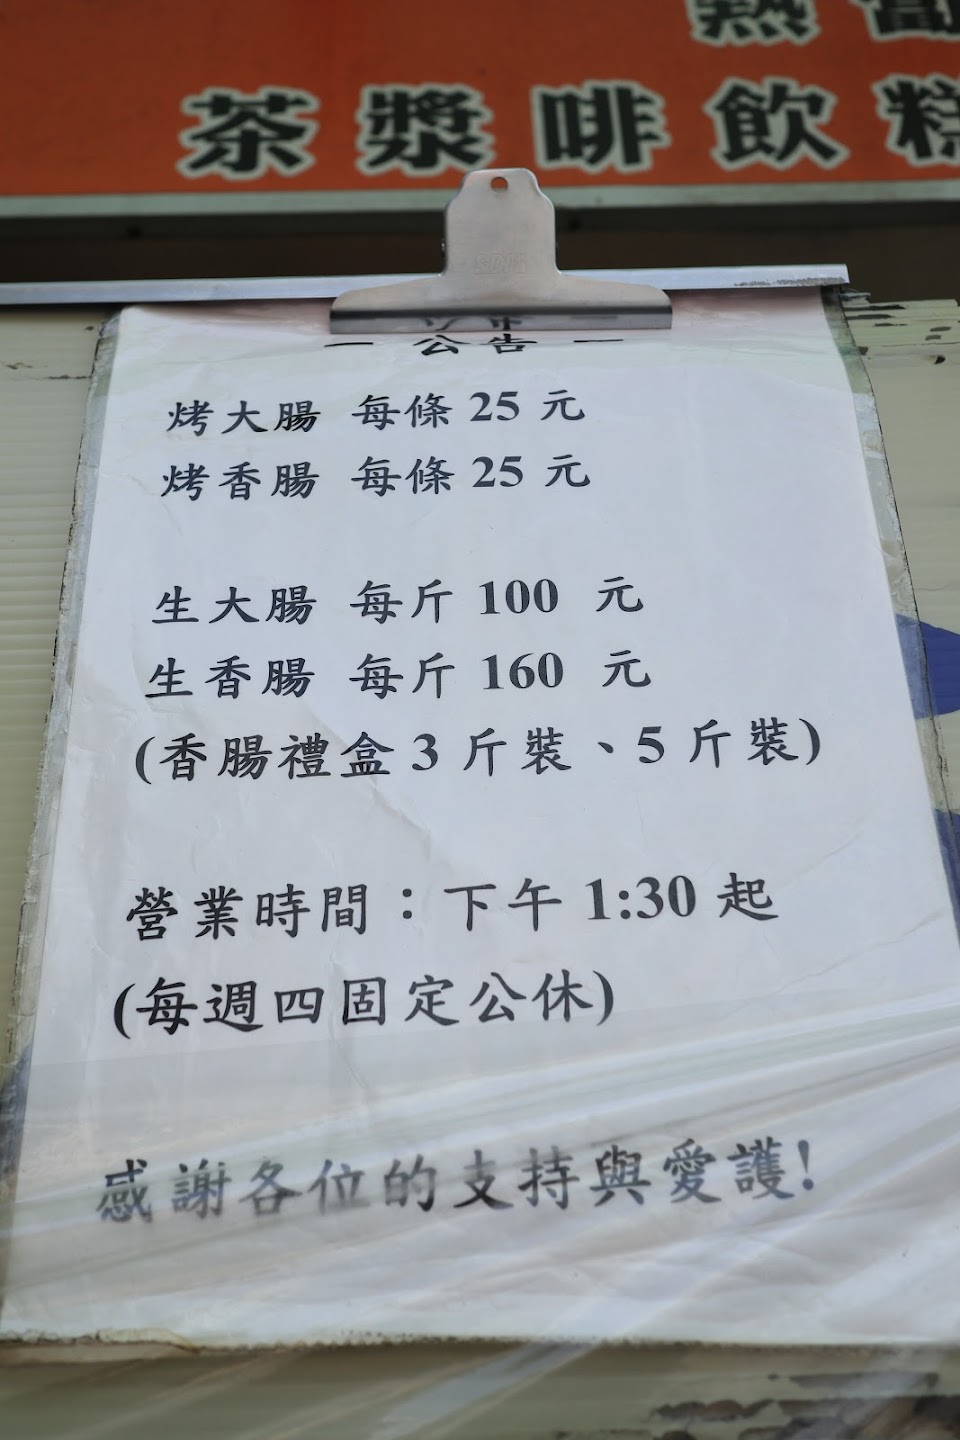 茶漿啡飲糕
－ 公告 －
烤大腸 每條 25 元
烤香腸 每條 25 元
生大腸 每斤 100 元
生香腸 每斤 160 元
(香腸禮盒 3 斤裝、5 斤裝)
營業時間：下午 1:30 起
(每週四固定公休)
感謝各位的支持與愛護!